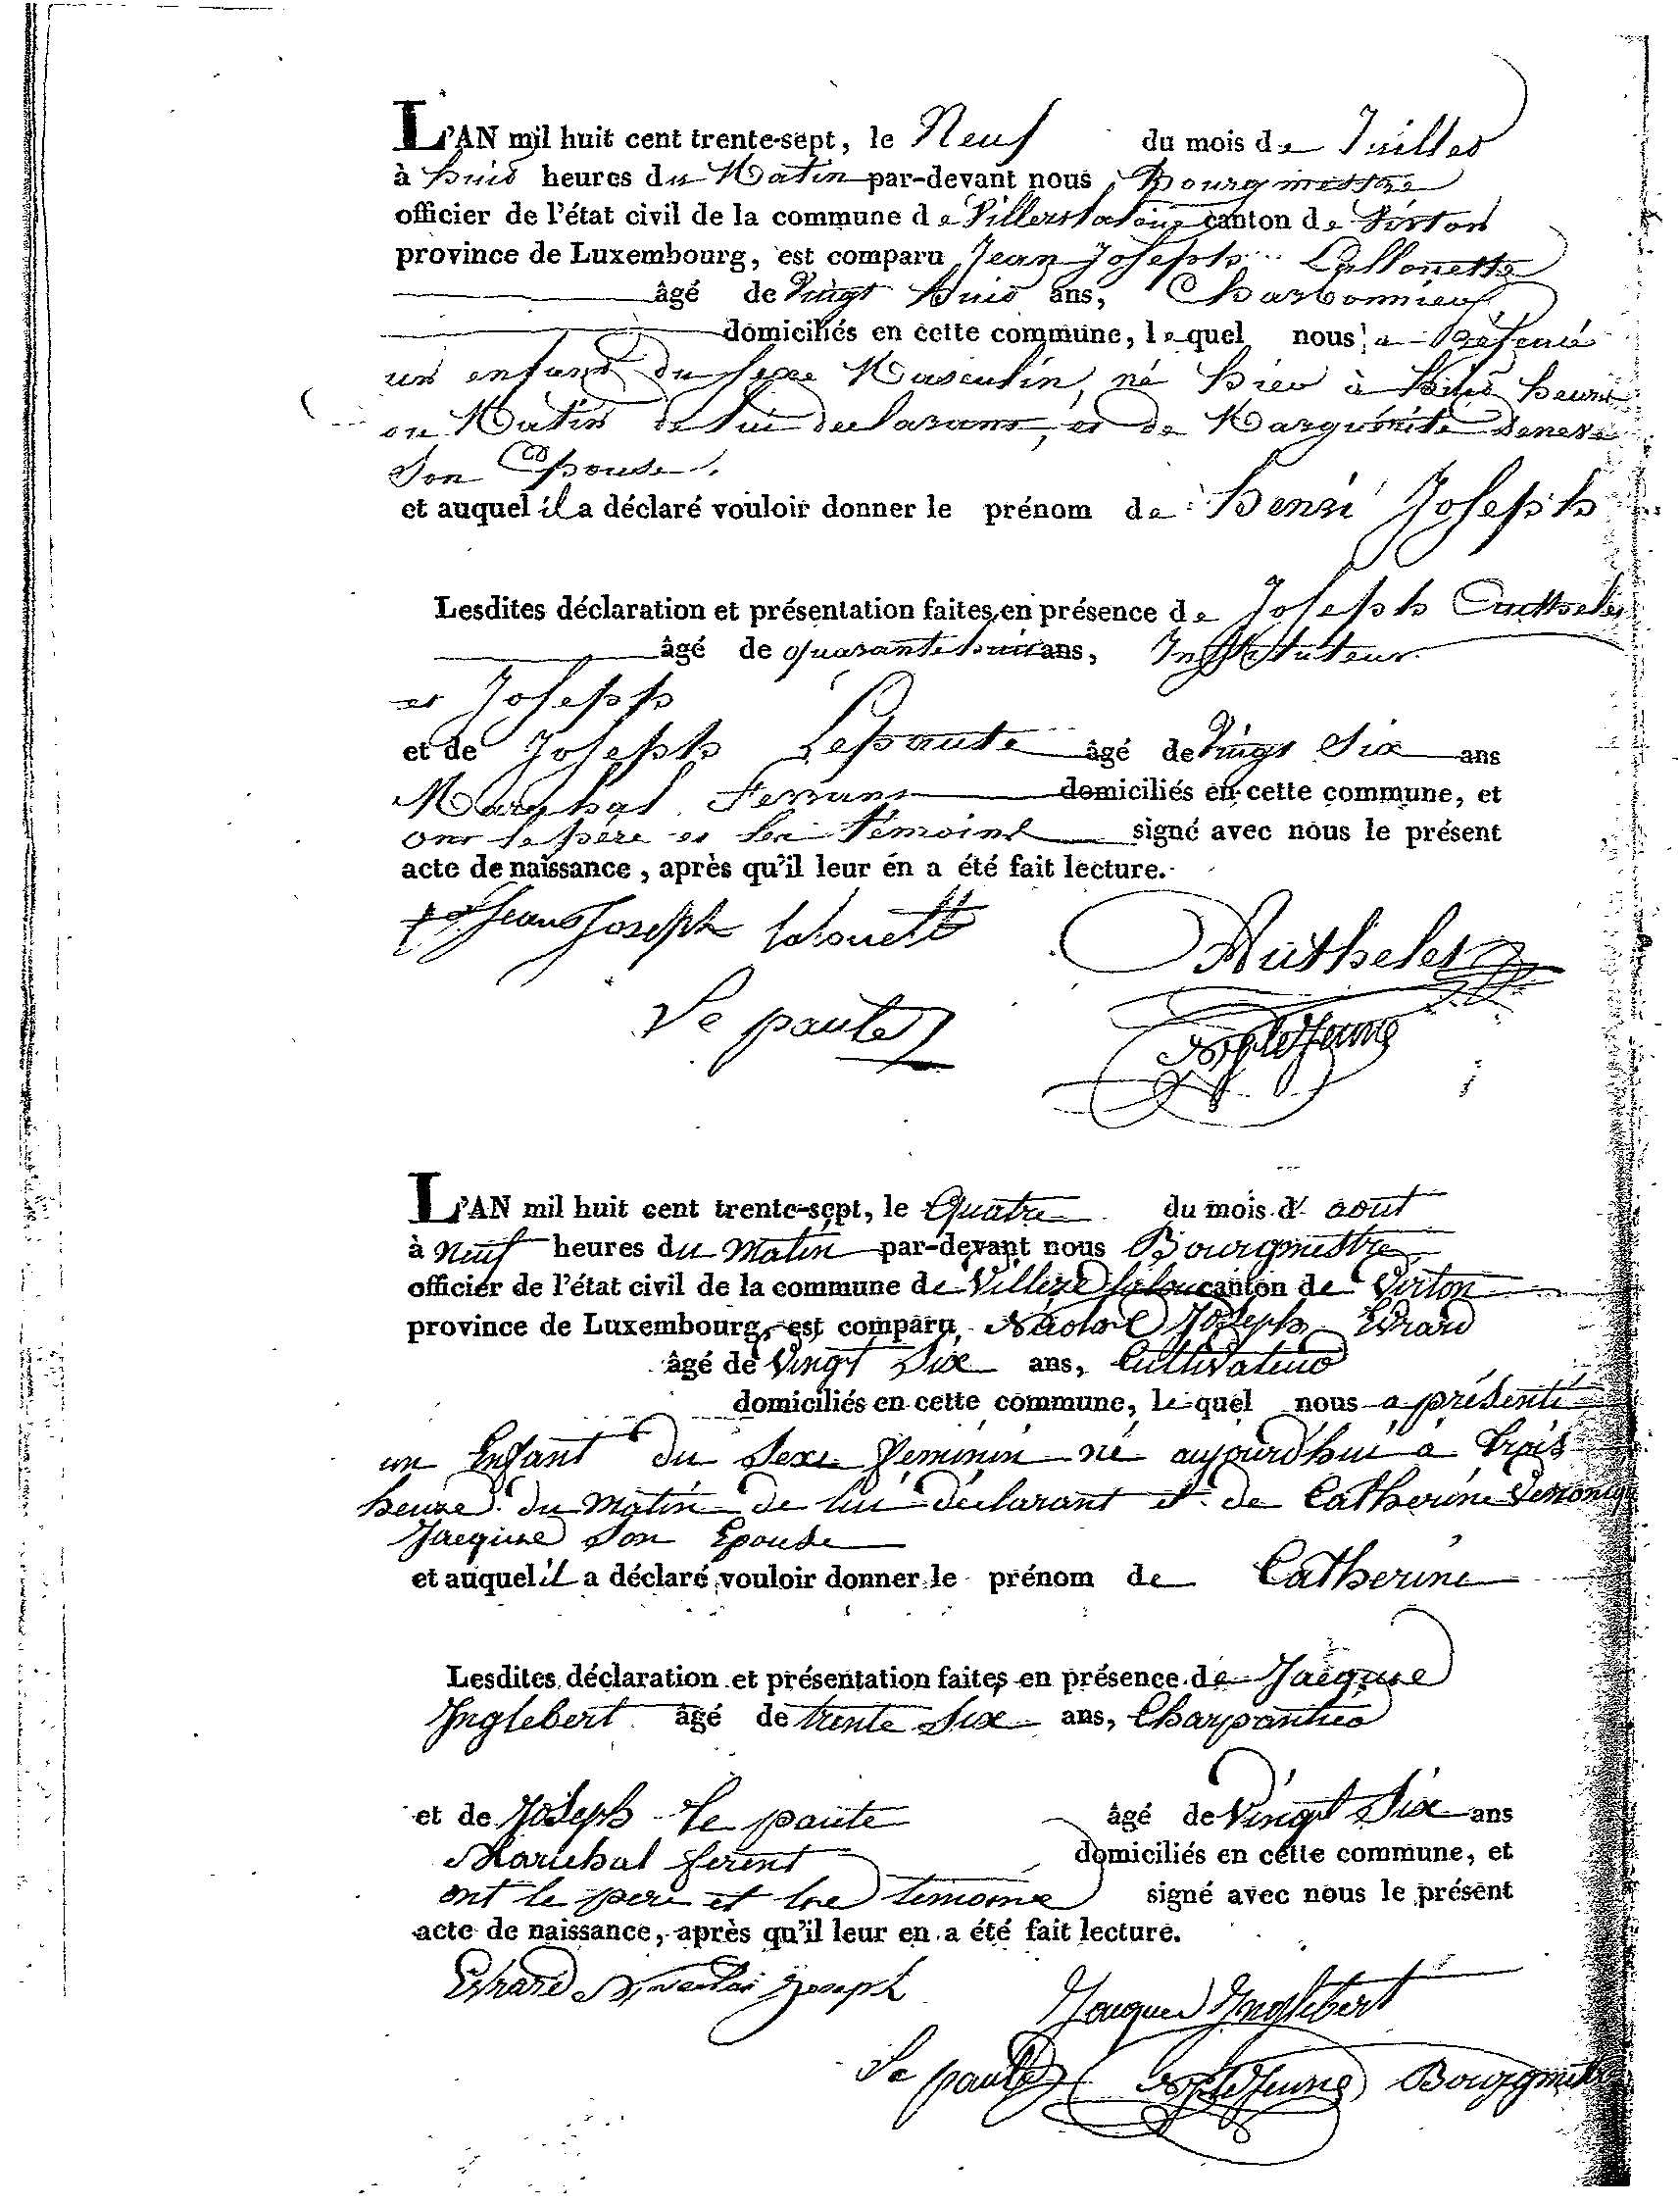 L'AN mil huit cent trente-sept, le Neuf du mois de Juillet
à huit heures du Matin par-devant nous Bourgmestre
officier de l'état civil de la commune de canton de Virton
province de Luxembourg, est comparu Jean Joseph Lallouette
âgé de Vingt huit ans, Charbonnier
domiciliés en cette commune, lequel nous a Présenté
un enfant du sexe Masculin, né hier à huit heures
du Matin de lui declarant, et de Marguérite
Son Epouse.
et auquel il a déclaré vouloir donner le prénom de henri Joseph
Lesdites déclaration et présentation faites en présence de Joseph
âgé de quarante huit ans, Instituteur
et Joseph
et de Joseph Lepaute âgé de Vingt Six ans
Maréchal Ferrant domiciliés en cette commune, et
ont le père et les témoins signé avec nous le présent
acte de naissance, après qu'il leur en a été fait lecture.
Jean Joseph lalouette Authelet
Le paute
L'AN mil huit cent trente-sept, le Quatre du mois d' aout
à neuf heures du matin par-devant nous Bourgmestre
officier de l'état civil de la commune de canton de Virton
province de Luxembourg, est comparu Nicolas Joseph Evrard
âgé de Vingt Six ans, Cultivateur
domiciliés en cette commune, lequel nous a présenté
un Enfant du Sexe feminin né aujourd'hui à trois
heures du matin de lui déclarant et de Catherine
Jacques Son Epouse
et auquel il a déclaré vouloir donner le prénom de Catherine
Lesdites déclaration et présentation faites en présence de Jacques
Inglebert âgé de trente Six ans, Charpantier
et de Joseph Le paute âgé de Vingt Six ans
Marichal ferent domiciliés en cette commune, et
ont le pere et les temoins signé avec nous le présent
acte de naissance, après qu'il leur en a été fait lecture.
Evrard Nicolas Joseph
Jacques Inglebert
Le paute Bourgmestre